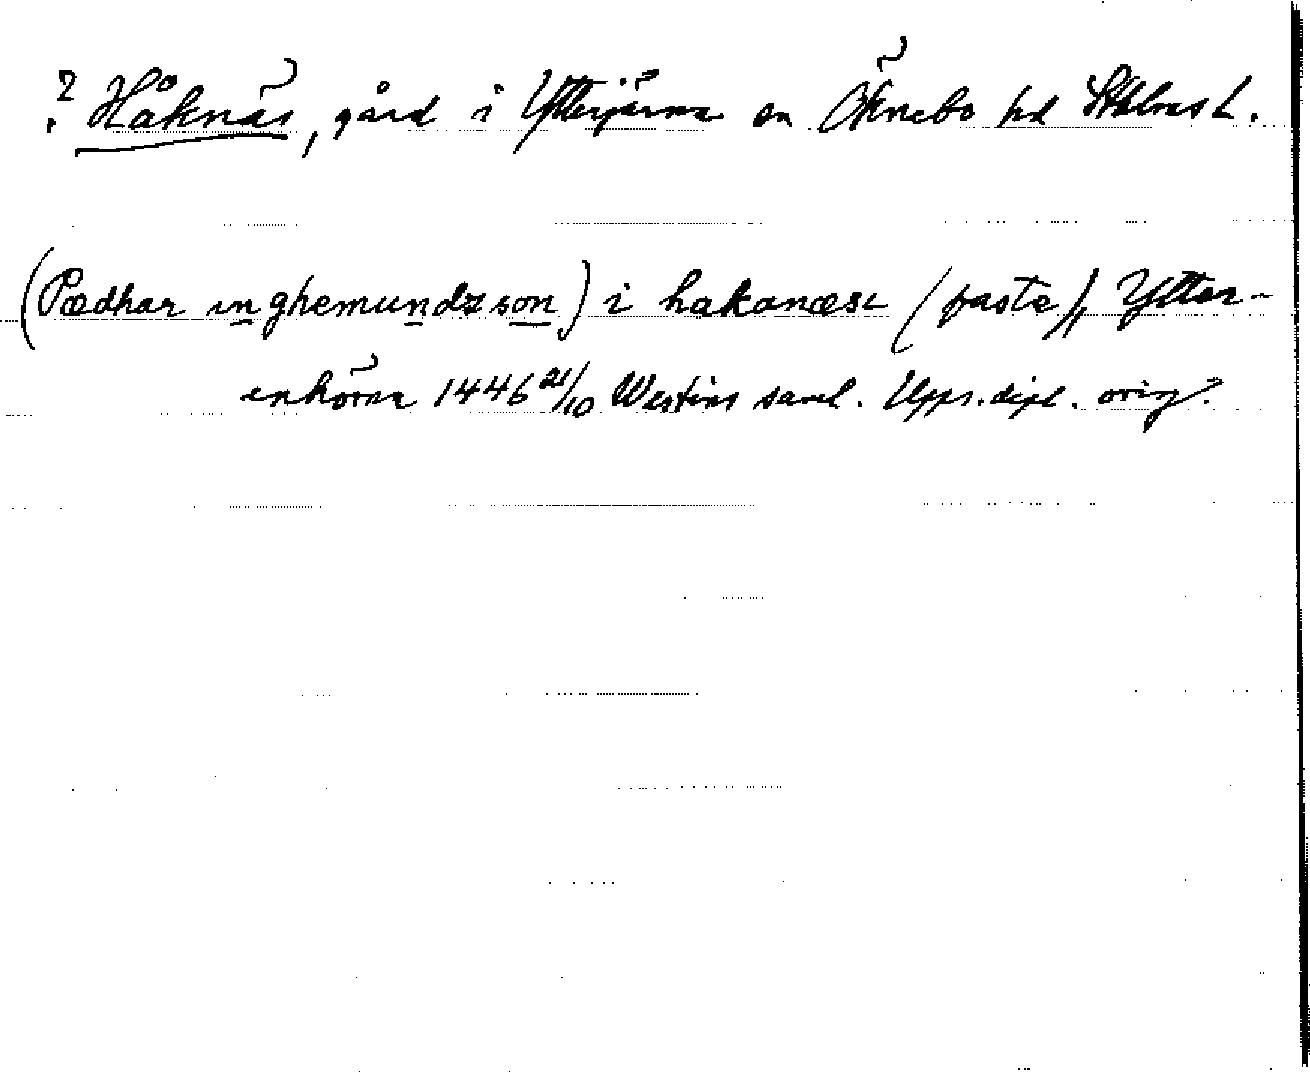 ? Håknäs, gård i Ytterjärna sn Öknebo hd Sthlms l.
(Pædhar inghemundzson) i hakanæse (faste), Ytter-
enhörna 1446 21/10 Westins saml. Upps. dipl. orig.